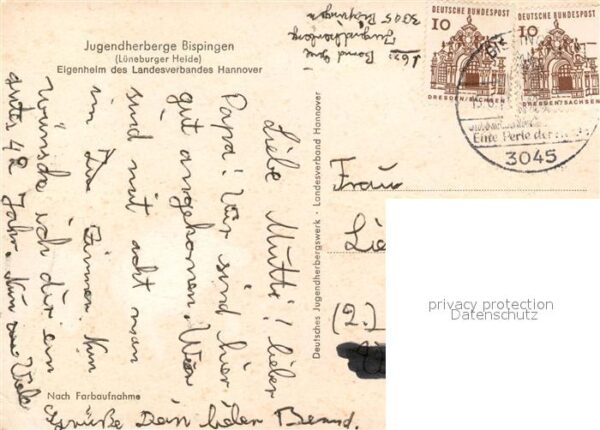 Jugendherberge Bispingen
(Lüneburger Heide)
Eigenheim des Landesverbandes Hannover
Liebe Mutti! lieber
Papa! Wir sind hier
gut angekommen. Wir
sind mit acht man
im Zimmer. Nun
wünsche ich dir ein
gutes 42 Jahr. Nun viele
Grüße Dein lieber Bernd.
Nach Farbaufnahme
Deutsches Jugendherbergswerk · Landesverband Hannover
Bernd
Jugendherberge
3045 Bispingen
DEUTSCHE BUNDESPOST
10
DRESDEN/SACHSEN
DEUTSCHE BUNDESPOST
10
DRESDEN/SACHSEN
Eine Perle der
3045
Frau
(2.)
privacy protection
Datenschutz